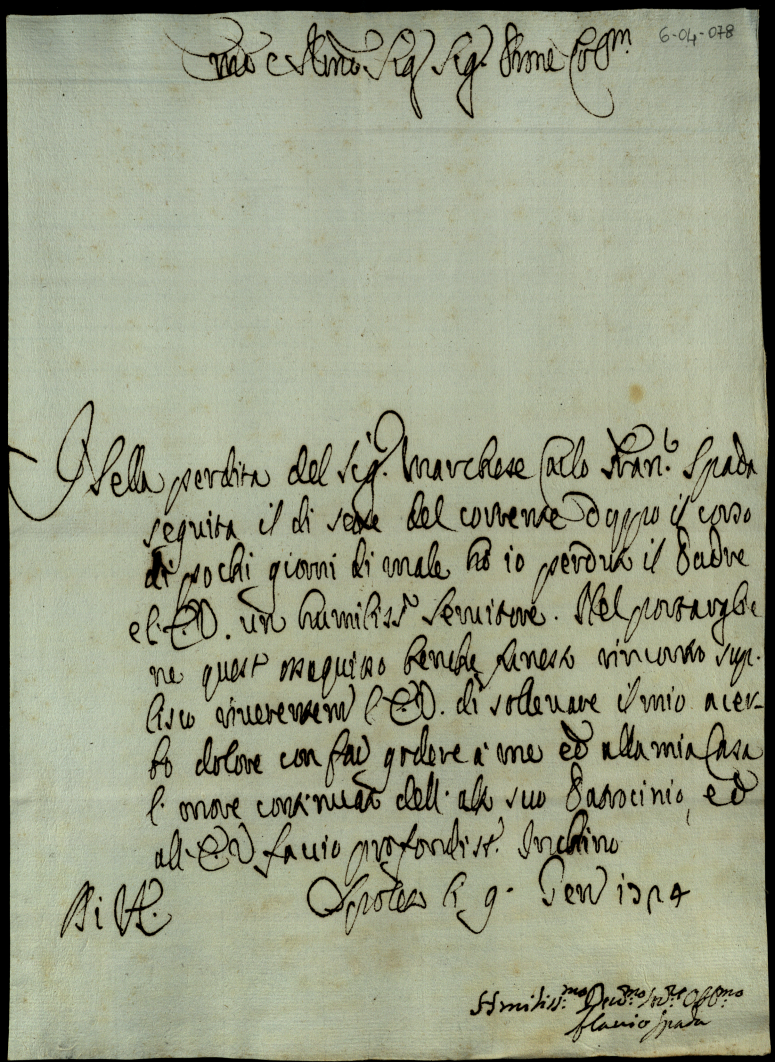 6-04-078
Emo e Rmo Sig Sig. Prone Colmo
Nella perdita del Sig. Marchese Carlo Fran.co Spada
seguita il di sette del corrente doppo il corso
di pochi giorni di male hò io perduta il Padre
e l'E.V. un humiliss.o Servitore. Nel portargliene
ne quest' ossequioso benche funesto rincontro sup-
lisco riverentem l'E.V. di sollevare il mio acer-
bo dolore con far godere à me ed alla mia Casa
l'onore continuat dell' alto suo Patrocinio, ed
all' E.V. faccio profondiss. Inchino
Di V.E. Spoleto li 9. Gen 1724
Humiliss.mo Deu.mo Ser.re Obb.mo
Flavio Spada